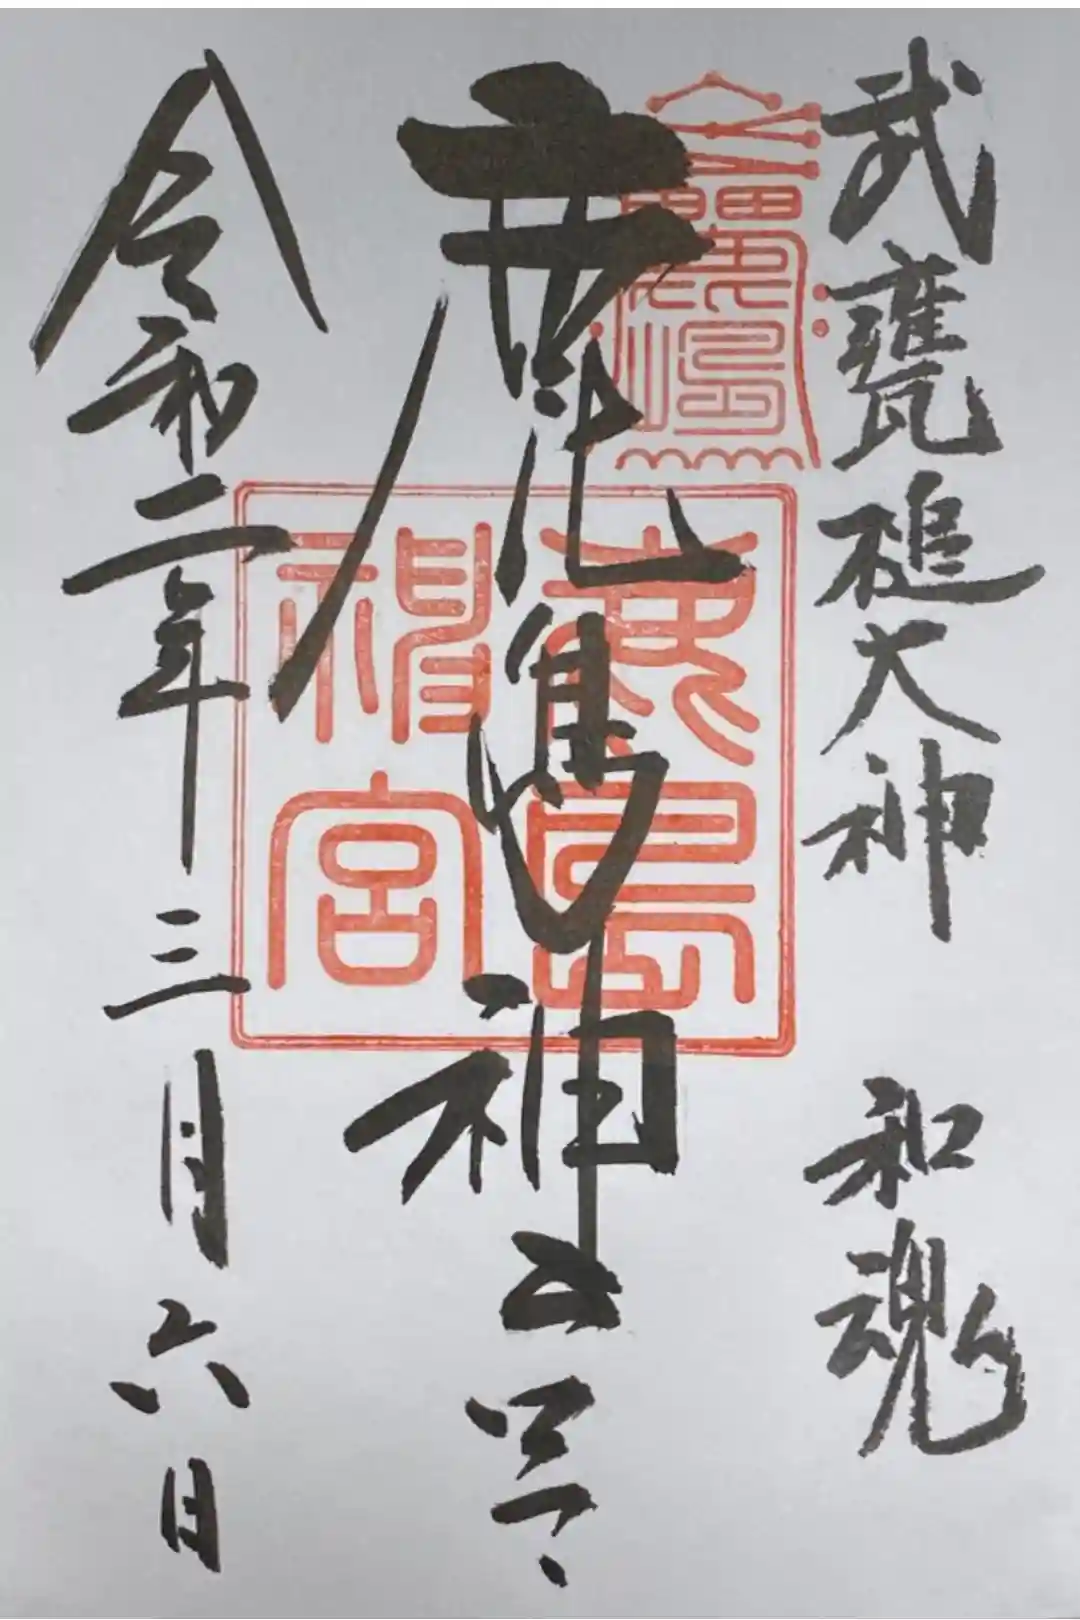 武甕槌大神 和魂
鹿島神宮
令和二年三月六日
鹿島神宮